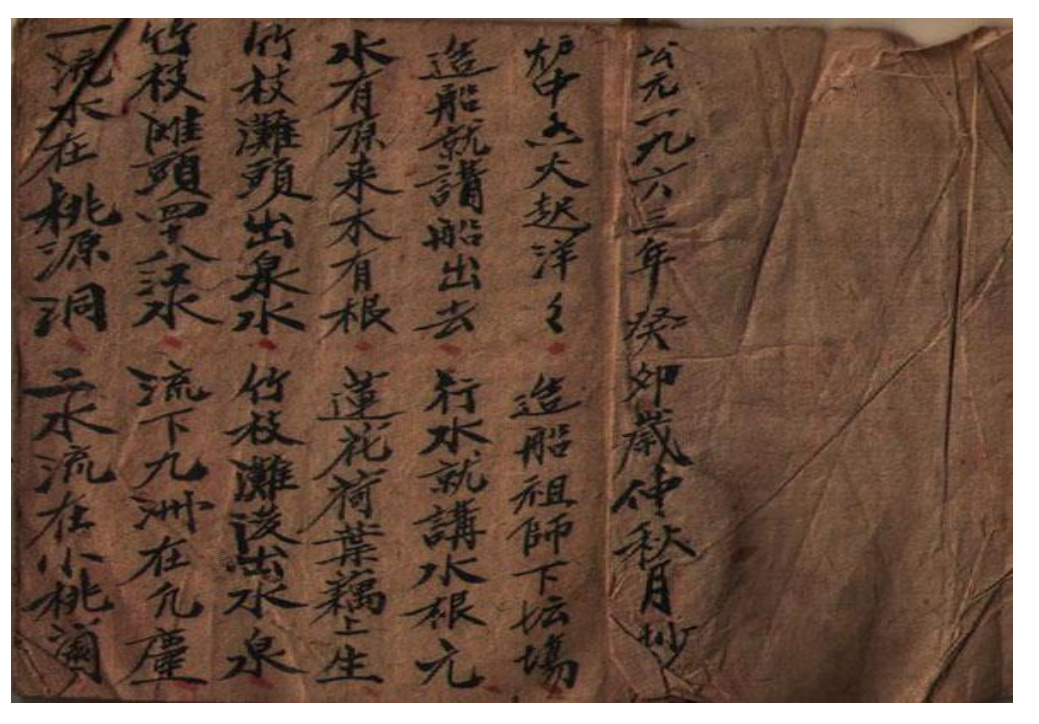 公元一九六三年癸卯歲仲秋月抄
炉中香火起洋々 造船祖師下坛塲
造船就講船出去 行水就講水根元
水有原来木有根 蓮花荷葉藕上生
竹枝灘頭出泉水 竹枝灘後出水泉
竹枝灘頭四十八江水 流下九洲在凢
一流水在桃源洞 二水流在小桃